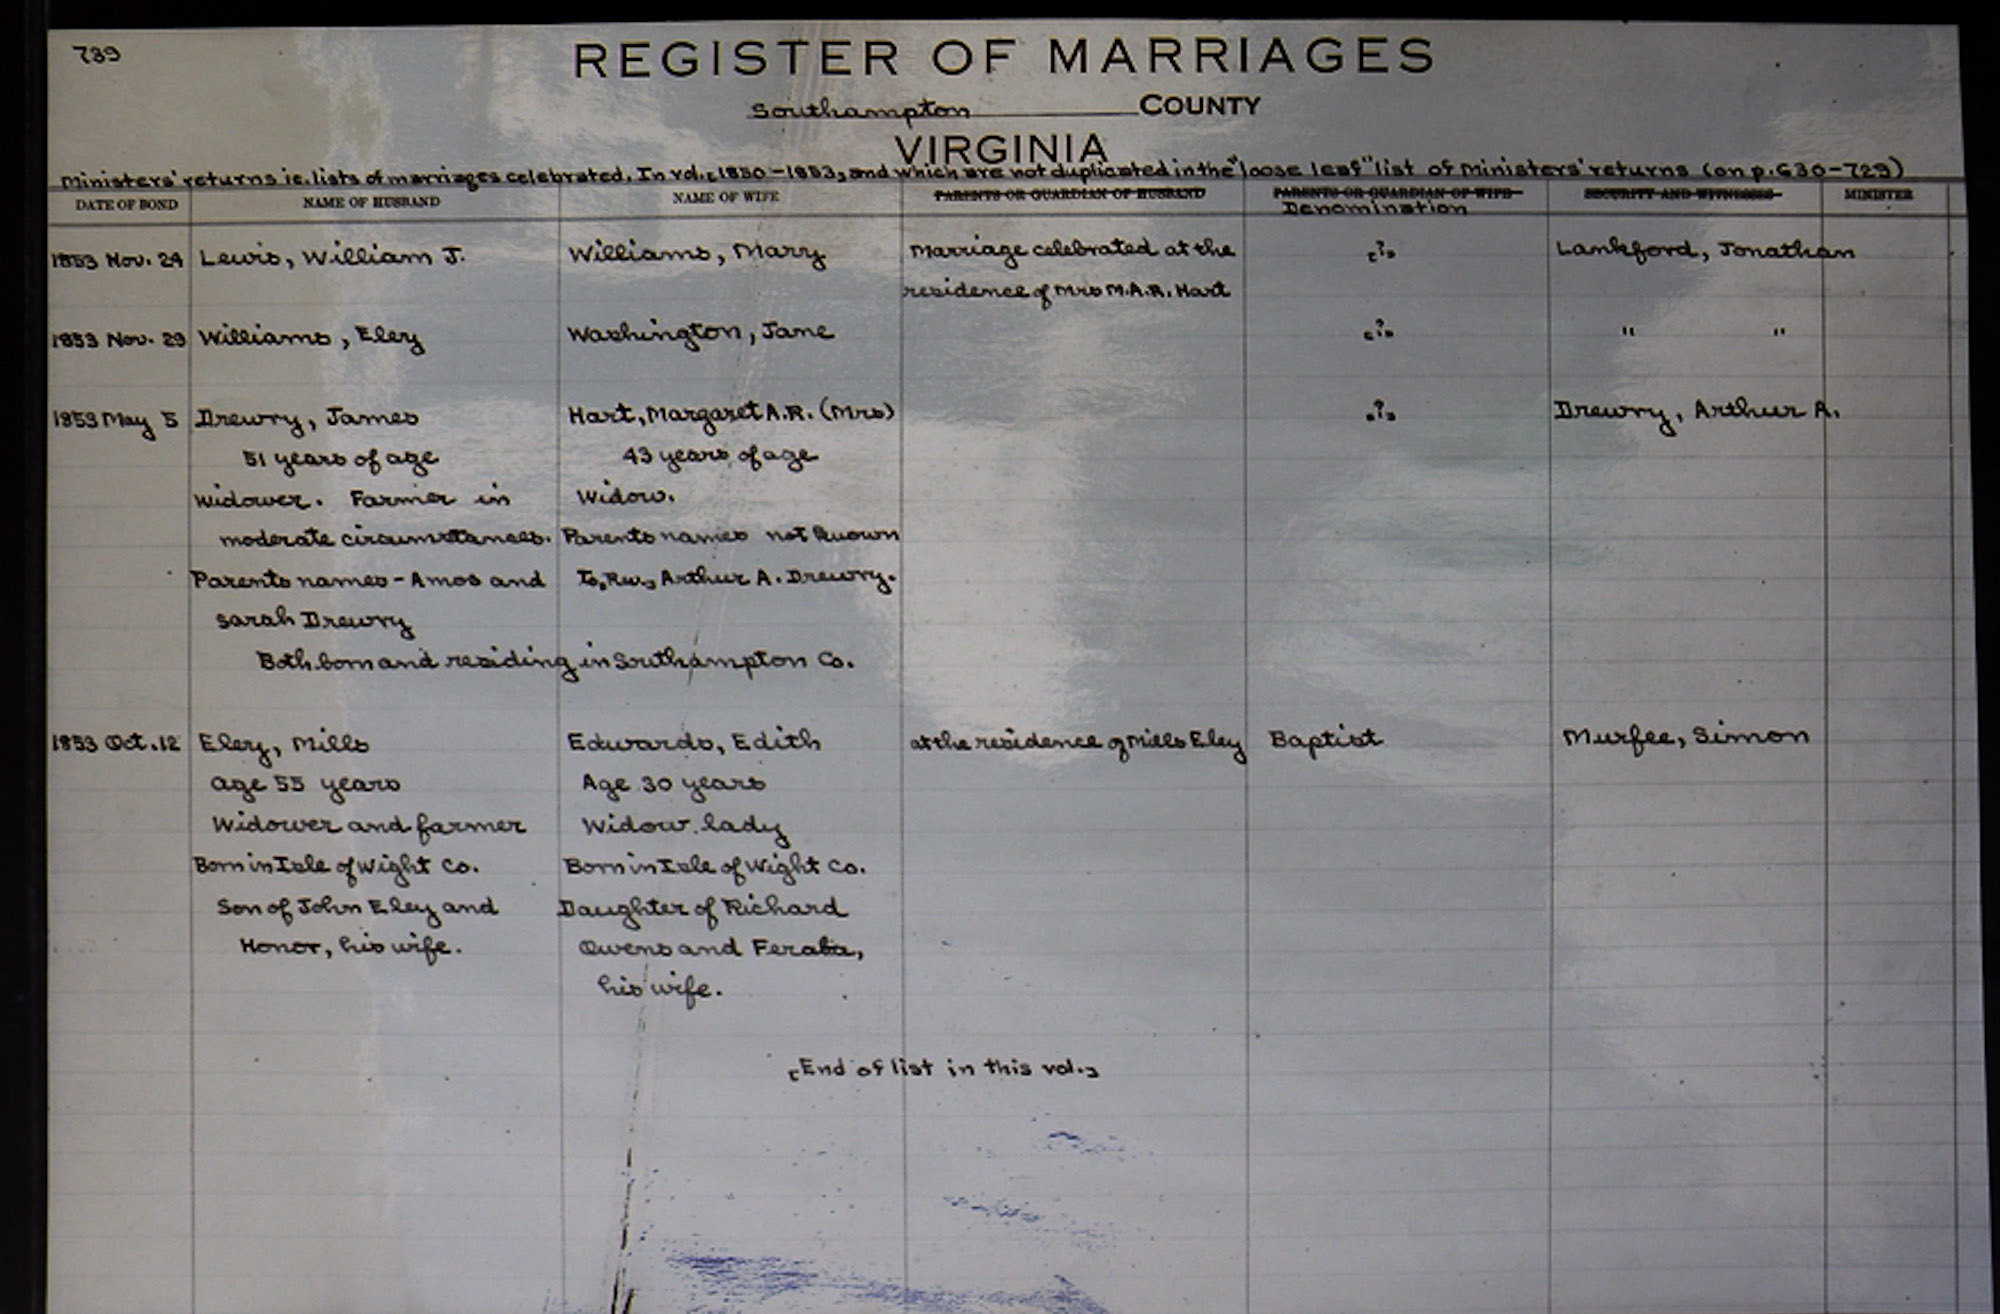 739
REGISTER OF MARRIAGES
Southampton COUNTY
VIRGINIA
Ministers' returns ie. lists of marriages celebrated, In vol. [1850-1853] and which are not duplicated in the "loose leaf" list of Ministers' returns (on p. 630-729)
DATE OF BOND NAME OF HUSBAND NAME OF WIFE PARENTS OR GUARDIAN OF HUSBAND PARENTS OR GUARDIAN OF WIFE SECURITY AND WITNESSES MINISTER
Denomination
1853 Nov. 24 Lewis, William J. Williams, Mary Marriage celebrated at the [?] Lankford, Jonathan
residence of Mrs M.A.R. Hart
1853 Nov. 29 Williams, Eley Washington, Jane [?] " "
1853 May 5 Drewry, James Hart, Margaret A.R. (Mrs) [?] Drewry, Arthur A.
51 years of age 43 years of age
Widower. Farmer in Widow.
moderate circumstances. Parents names not known
Parents names - Amos and To, Rev., Arthur A. Drewry.
Sarah Drewry
Both born and residing in Southampton Co.
1853 Oct. 12 Eley, Mills Edwards, Edith at the residence of Mills Eley Baptist Murfee, Simon
age 55 years Age 30 years
Widower and farmer Widow lady
Born in Isle of Wight Co. Born in Isle of Wight Co.
Son of John Eley and Daughter of Richard
Honor, his wife. Owens and Feraba,
his wife.
[End of list in this vol.]